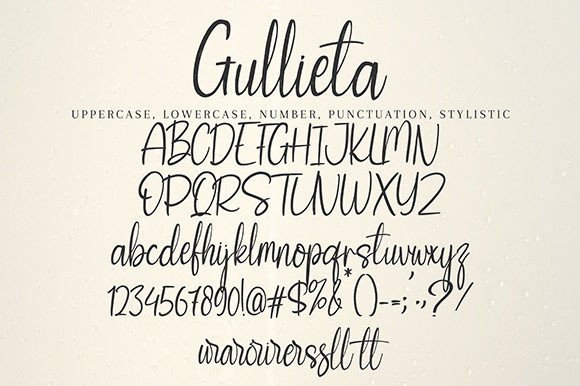 Gullieta
UPPERCASE, LOWERCASE, NUMBER, PUNCTUATION, STYLISTIC
ABCDEFGHIJKLMN
OPQRSTUVWXYZ
abcdefghijklmnopqrstuvwxyz
1234567890!@#$%&*()-=;'.,?/
tt